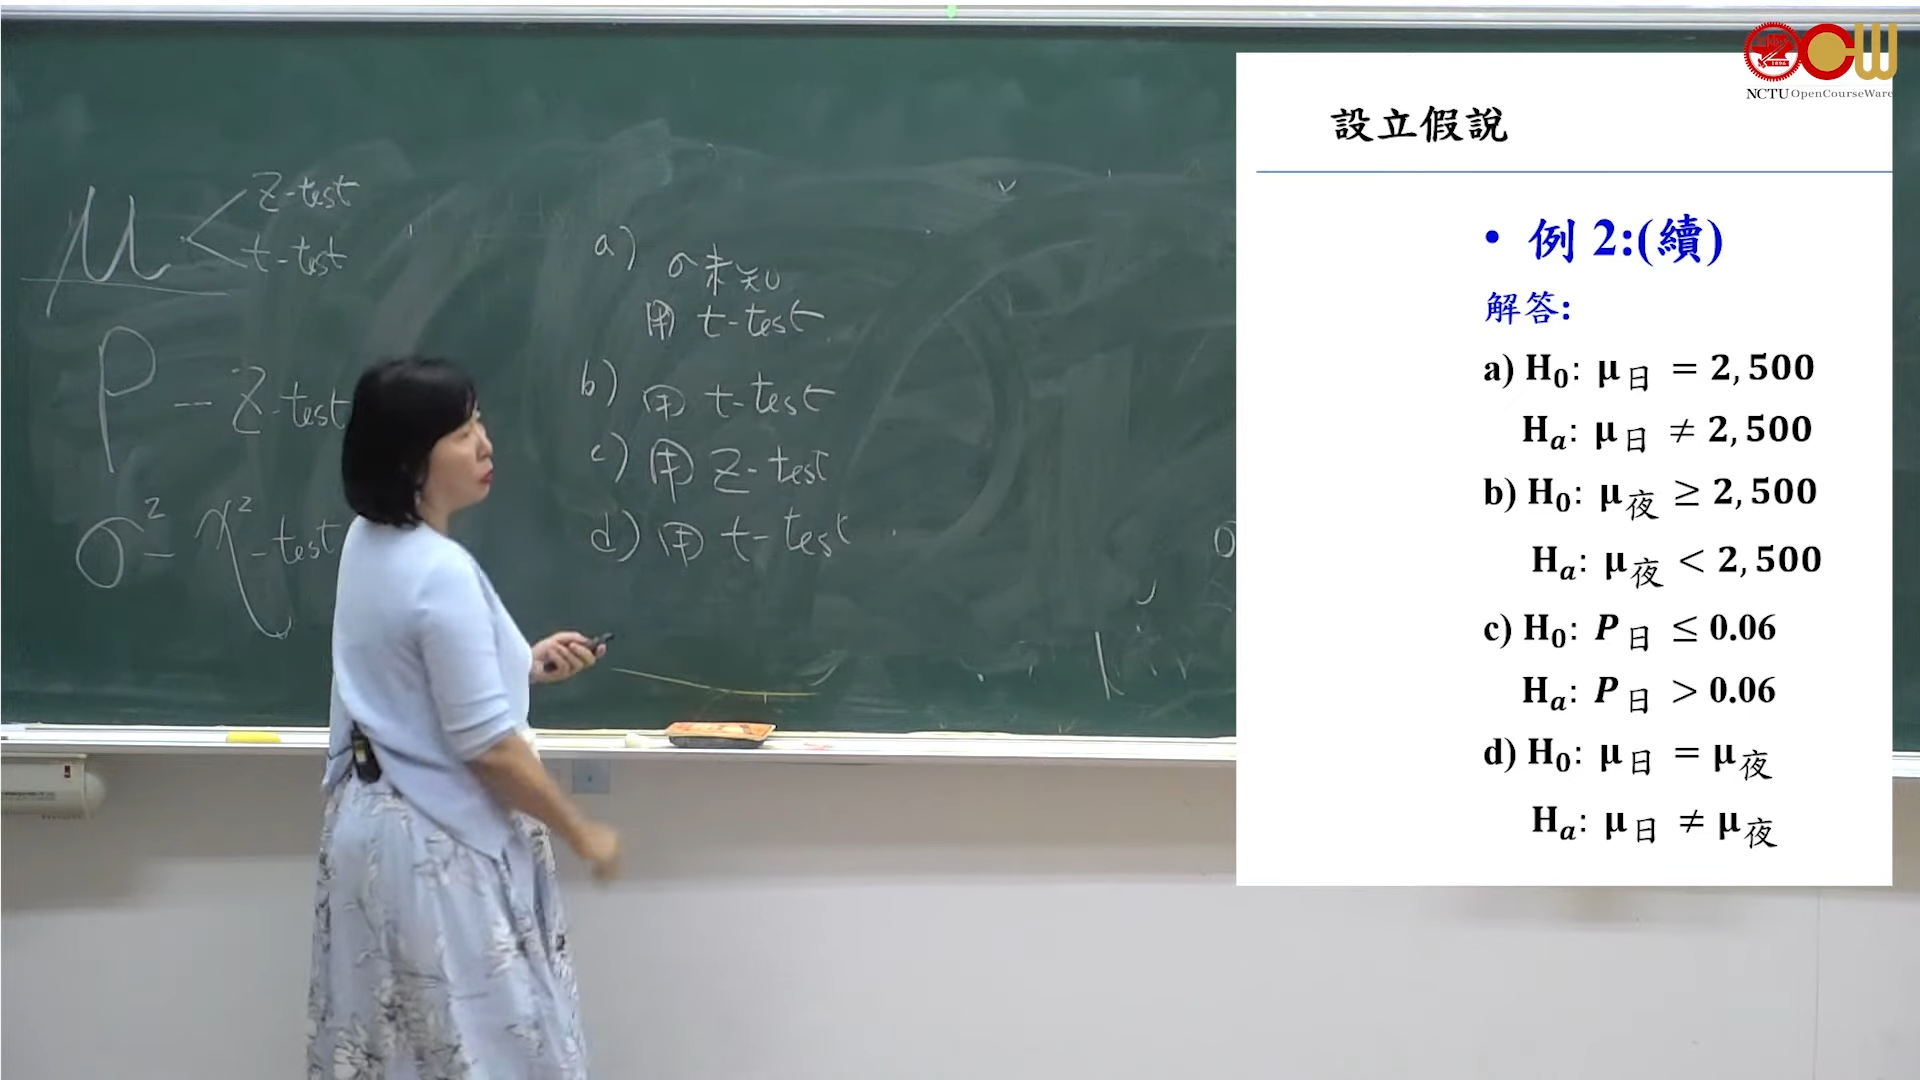 μ < z-test
t-test
P - Z-test
σ² - χ²-test
a) σ未知
用 t-test
b) 用 t-test
c) 用 Z-test
d) 用 t-test
NCTU OpenCourseWare
設立假說
• 例 2:(續)
解答:
a) H₀: μ日 = 2,500
Hₐ: μ日 ≠ 2,500
b) H₀: μ夜 ≥ 2,500
Hₐ: μ夜 < 2,500
c) H₀: P日 ≤ 0.06
Hₐ: P日 > 0.06
d) H₀: μ日 = μ夜
Hₐ: μ日 ≠ μ夜